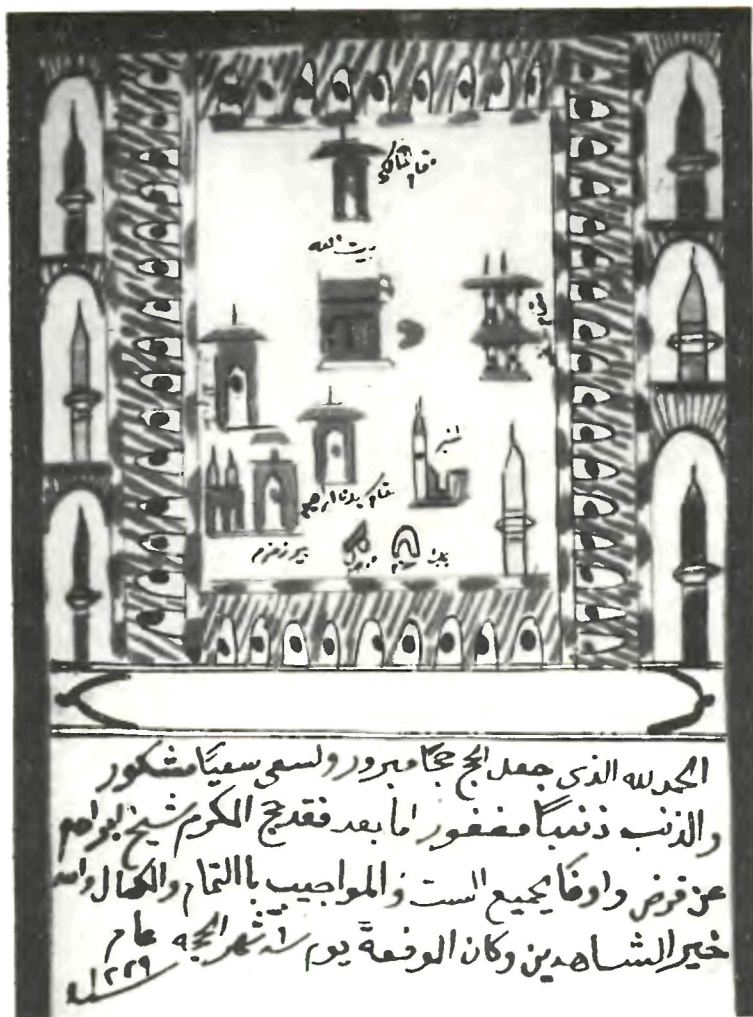 مقام
بيت الله
مقام سيدنا ابرهيم
بير زمزم
الحمد لله الذى جعل الحج حجًا مبرور ولسعى سعيًا مشكور
والذنب ذنبًا مغفور اما بعد فقد حج المكرم شيخ ابراهم
عن فرض واوفا بجميع الست والمواجيب باالتمام والكمال والله
خير الشاهدين وكان الوقفة يوم شهر الحجه عام
سنة ١٢٢٩